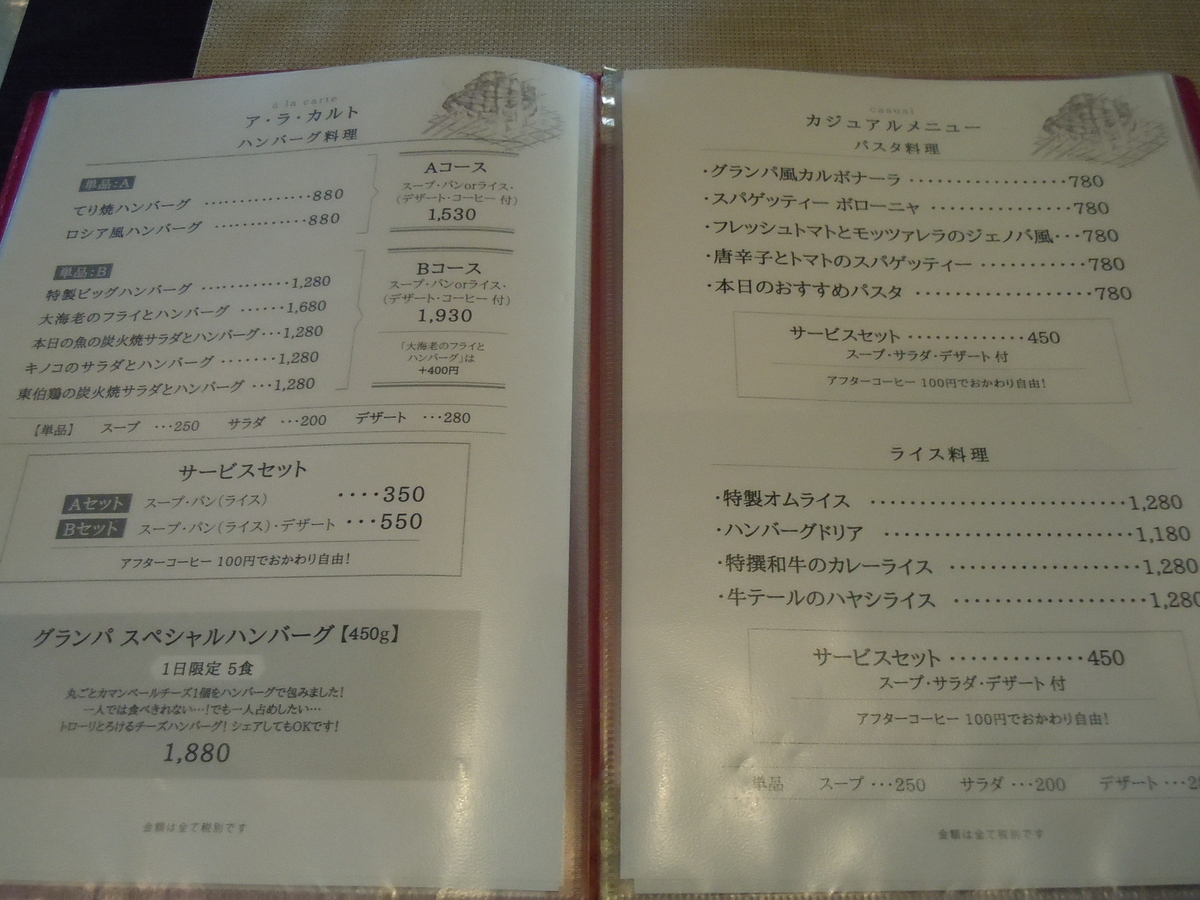 à la carte
ア・ラ・カルト
ハンバーグ料理
単品：A
てり焼ハンバーグ ……………880
ロシア風ハンバーグ …………880
Aコース
スープ・パンorライス・
（デザート・コーヒー 付）
1,530
単品：B
特製ビッグハンバーグ …………1,280
大海老のフライとハンバーグ ……1,680
本日の魚の炭火焼サラダとハンバーグ…1,280
キノコのサラダとハンバーグ ……1,280
東伯鶏の炭火焼サラダとハンバーグ …1,280
Bコース
スープ・パンorライス・
（デザート・コーヒー 付）
1,930
「大海老のフライと
ハンバーグ」は
+400円
【単品】 スープ …250 サラダ …200 デザート …280
サービスセット
Aセット スープ・パン（ライス） ‥‥350
Bセット スープ・パン（ライス）・デザート …550
アフターコーヒー 100円でおかわり自由！
グランパ スペシャルハンバーグ【450g】
1日限定 5食
丸ごとカマンベールチーズ1個をハンバーグで包みました！
一人では食べきれない…！でも一人占めしたい…
トローリとろけるチーズハンバーグ！シェアしてもOKです！
1,880
金額は全て税別です
casual
カジュアルメニュー
パスタ料理
・グランパ風カルボナーラ ………………780
・スパゲッティー ボローニャ ……………780
・フレッシュトマトとモッツァレラのジェノバ風…780
・唐辛子とトマトのスパゲッティー …………780
・本日のおすすめパスタ …………………780
サービスセット …………450
スープ・サラダ・デザート 付
アフターコーヒー 100円でおかわり自由！
ライス料理
・特製オムライス ………………………1,280
・ハンバーグドリア ………………………1,180
・特撰和牛のカレーライス …………………1,280
・牛テールのハヤシライス …………………1,280
サービスセット …………450
スープ・サラダ・デザート 付
アフターコーヒー 100円でおかわり自由！
単品 スープ …250 サラダ …200 デザート …
金額は全て税別です